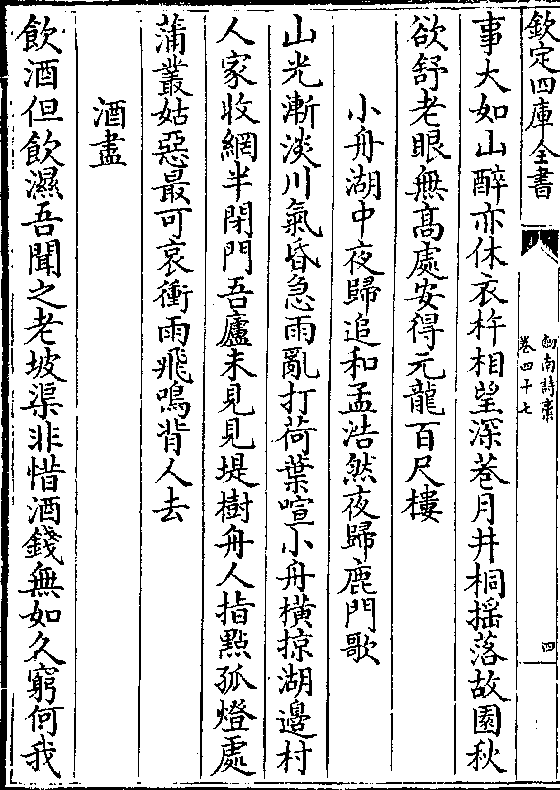 欽定四庫全書
劍南詩槀
卷四十七
四
事大如山醉亦休衣杵相望深巷月井桐揺落故園秋
欲舒老眼無髙處安得元龍百尺樓
小舟湖中夜歸追和孟浩然夜歸鹿門歌
山光漸淡川氣昏急雨亂打荷葉喧小舟橫掠湖邊村
人家收網半閉門吾廬未見見堤樹舟人指㸃孤燈處
蒲叢姑惡最可哀衝雨飛鳴背人去
酒盡
飲酒但飲濕吾聞之老坡渠非惜酒錢無如久窮何我